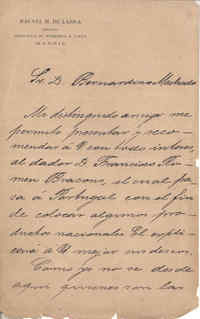 RAFAEL M. DE LABRA
MADRID
Sr. D. Bernardino Machado
Me distinguido amigo me
permito presentar y reco-
mendar á V con todo interes,
al dador D. Francisco
men Bracons, el cual pa
sa á Portugal con el fin
de colocar algunos pro-
ductos nacionales El expli
cará a V mejor sus deseos.
Como yo no se desde
aqui quienes son las